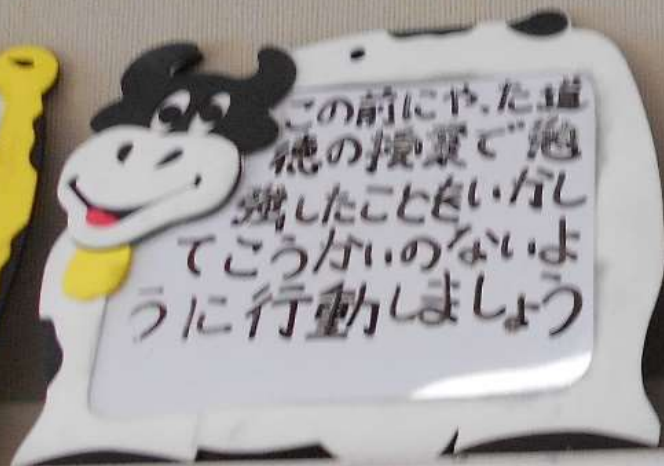 この前にやった道
徳の授業で勉
強したことをいかし
てこうかいのないよ
うに行動しましょう